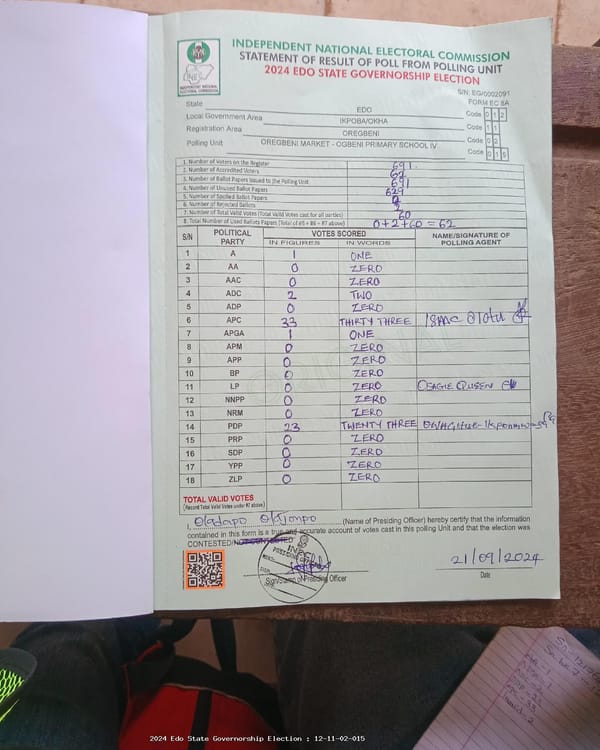 INDEPENDENT NATIONAL ELECTORAL COMMISSION
STATEMENT OF RESULT OF POLL FROM POLLING UNIT
2024 EDO STATE GOVERNORSHIP ELECTION
S/N: EG/0002091
FORM EC 8A
State EDO Code 0 1 2
Local Government Area IKPOBA/OKHA Code 1 1
Registration Area OREGBENI Code 0 2
Polling Unit OREGBENI MARKET - OGBENI PRIMARY SCHOOL IV Code 0 1 5
1. Number of Voters on the Register 691
2. Number of Accredited Voters 62
3. Number of Ballot Papers Issued to the Polling Unit 691
4. Number of Unused Ballot Papers 629
5. Number of Spoiled Ballot Papers 0
6. Number of Rejected Ballots 2
7. Number of Total Valid Votes (Total Valid Votes cast for all parties) 60
8. Total Number of Used Ballots Papers (Total of #5 + #6 + #7 above) 0+2+60 = 62
S/N POLITICAL PARTY VOTES SCORED NAME/SIGNATURE OF POLLING AGENT
IN FIGURES IN WORDS
1 A 1 ONE
2 AA 0 ZERO
3 AAC 0 ZERO
4 ADC 2 TWO
5 ADP 0 ZERO
6 APC 33 THIRTY THREE
7 APGA 1 ONE
8 APM 0 ZERO
9 APP 0 ZERO
10 BP 0 ZERO
11 LP 0 ZERO OSAGIE QUEEN
12 NNPP 0 ZERO
13 NRM 0 ZERO
14 PDP 23 TWENTY THREE
15 PRP 0 ZERO
16 SDP 0 ZERO
17 YPP 0 ZERO
18 ZLP 0 ZERO
TOTAL VALID VOTES
(Record Total Valid Votes under #7 above)
I, Oladapo (Name of Presiding Officer) hereby certify that the information
contained in this form is a true and accurate account of votes cast in this polling Unit and that the election was
CONTESTED/NOT CONTESTED
INEC
Sign/Stamp of Presiding Officer
21/09/2024
Date
2024 Edo State Governorship Election : 12-11-02-015